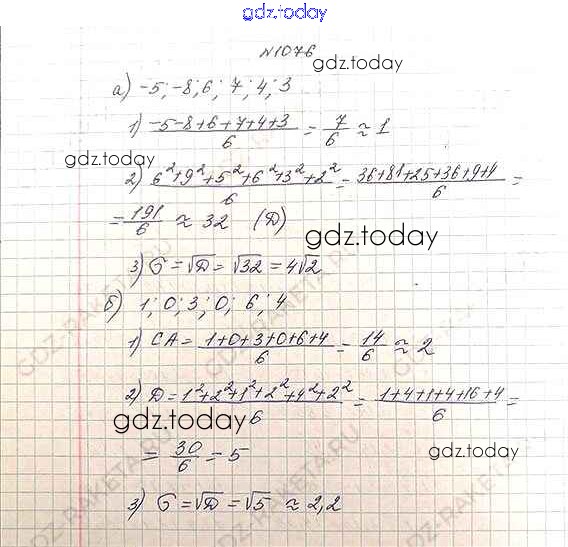 gdz.today
№1076
gdz.today
а) -5; -8; 6; 7; 4; 3
1) (-5-8+6+7+4+3)/6 = 7/6 ≈ 1
gdz.today
2) (6²+9²+5²+6²+3²+2²)/6 = (36+81+25+36+9+4)/6 =
= 191/6 ≈ 32 (D)
gdz.today
3) σ = √D = √32 = 4√2
б) 1; 0; 3; 0; 6; 4
1) СА = (1+0+3+0+6+4)/6 = 14/6 ≈ 2
2) D = (1²+2²+1²+2²+4²+2²)/6 = (1+4+1+4+16+4)/6 =
gdz.today
= 30/6 = 5
gdz.today
3) σ = √D = √5 ≈ 2,2
GDZ-RAKETA.RU
GDZ-RAKETA.RU